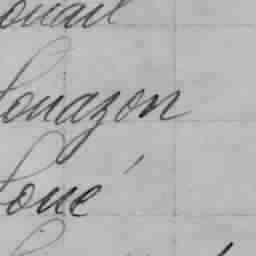 ouail
Louazon
Loué